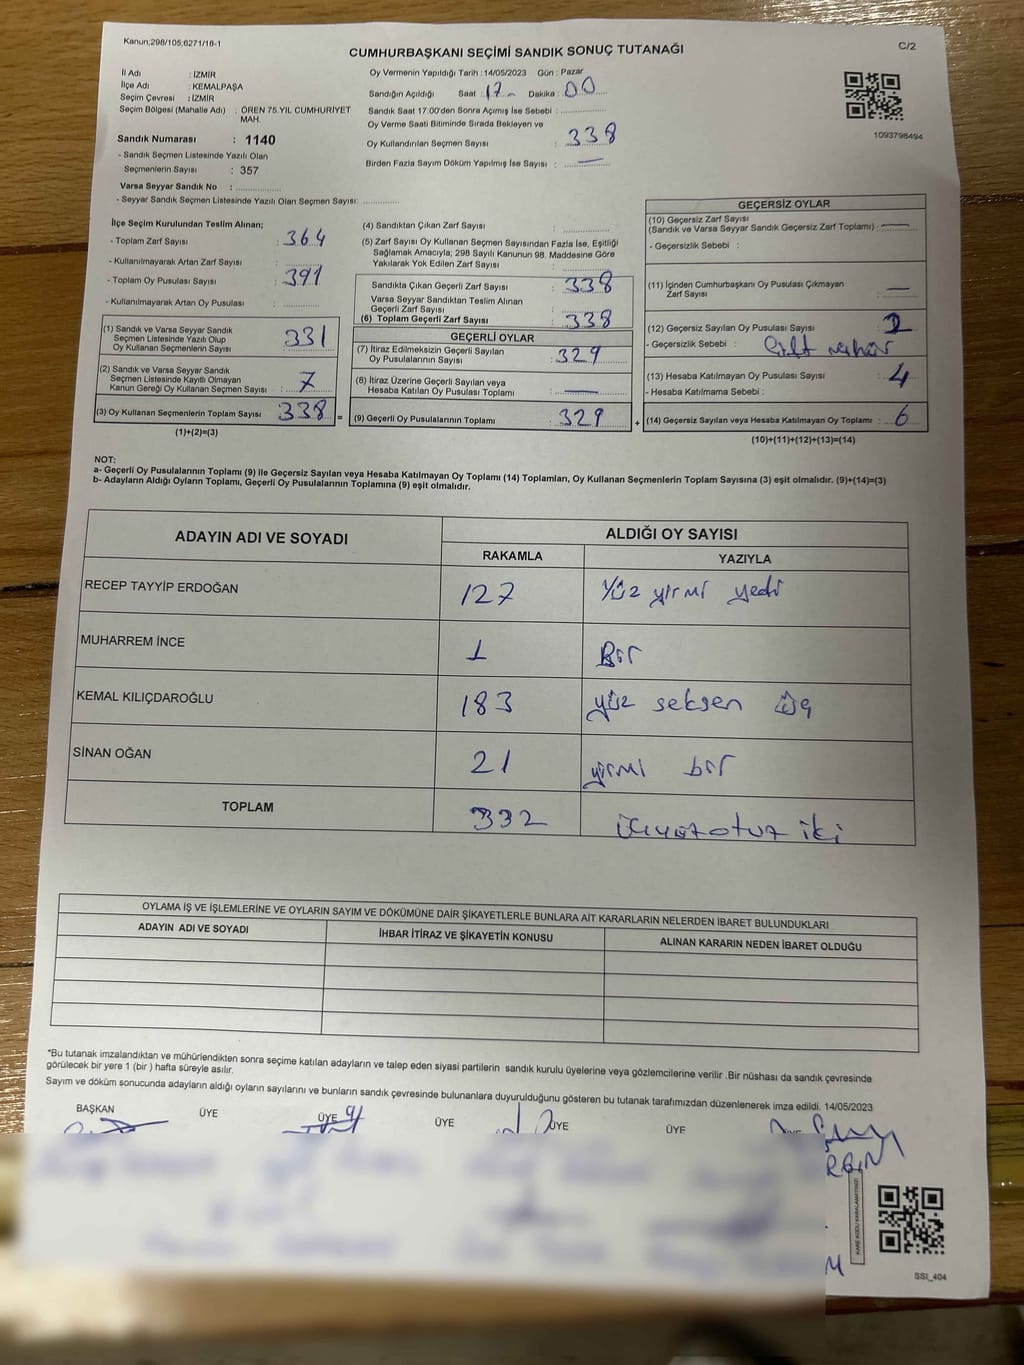 Kanun;298/105,6271/18-1
C/2
CUMHURBAŞKANI SEÇİMİ SANDIK SONUÇ TUTANAĞI
İl Adı : İZMİR
İlçe Adı : KEMALPAŞA
Seçim Çevresi : İZMİR
Seçim Bölgesi (Mahalle Adı) : ÖREN 75.YIL CUMHURİYET
MAH.
Sandık Numarası : 1140
- Sandık Seçmen Listesinde Yazılı Olan
Seçmenlerin Sayısı : 357
Varsa Seyyar Sandık No :
- Seyyar Sandık Seçmen Listesinde Yazılı Olan Seçmen Sayısı:
Oy Vermenin Yapıldığı Tarih :14/05/2023 Gün : Pazar
Sandığın Açıldığı Saat : 17 - Dakika : 00
Sandık Saat 17:00'den Sonra Açımış İse Sebebi :
Oy Verme Saati Bitiminde Sırada Bekleyen ve
Oy Kullandırılan Seçmen Sayısı : 338
Birden Fazla Sayım Döküm Yapılmış İse Sayısı : —
1093798494
İlçe Seçim Kurulundan Teslim Alınan;
- Toplam Zarf Sayısı : 364
- Kullanılmayarak Artan Zarf Sayısı :
- Toplam Oy Pusulası Sayısı : 391
- Kullanılmayarak Artan Oy Pusulası :
(1) Sandık ve Varsa Seyyar Sandık
Seçmen Listesinde Yazılı Olup
Oy Kullanan Seçmenlerin Sayısı : 331
(2) Sandık ve Varsa Seyyar Sandık
Seçmen Listesinde Kayıtlı Olmayan
Kanun Gereği Oy Kullanan Seçmen Sayısı : 7
(3) Oy Kullanan Seçmenlerin Toplam Sayısı : 338 =
(1)+(2)=(3)
(4) Sandıktan Çıkan Zarf Sayısı :
(5) Zarf Sayısı Oy Kullanan Seçmen Sayısından Fazla İse, Eşitliği
Sağlamak Amacıyla, 298 Sayılı Kanunun 98. Maddesine Göre
Yakılarak Yok Edilen Zarf Sayısı :
Sandıkta Çıkan Geçerli Zarf Sayısı : 338
Varsa Seyyar Sandıktan Teslim Alınan
Geçerli Zarf Sayısı :
(6) Toplam Geçerli Zarf Sayısı : 338
GEÇERLİ OYLAR
(7) İtiraz Edilmeksizin Geçerli Sayılan
Oy Pusulalarının Sayısı : 329
(8) İtiraz Üzerine Geçerli Sayılan veya
Hesaba Katılan Oy Pusulası Toplamı : —
(9) Geçerli Oy Pusulalarının Toplamı : 329 +
GEÇERSİZ OYLAR
(10) Geçersiz Zarf Sayısı
(Sandık ve Varsa Seyyar Sandık Geçersiz Zarf Toplamı) : —
- Geçersizlik Sebebi :
(11) İçinden Cumhurbaşkanı Oy Pusulası Çıkmayan
Zarf Sayısı : —
(12) Geçersiz Sayılan Oy Pusulası Sayısı : 2
- Geçersizlik Sebebi : Çift mühür
(13) Hesaba Katılmayan Oy Pusulası Sayısı : 4
- Hesaba Katılmama Sebebi :
(14) Geçersiz Sayılan veya Hesaba Katılmayan Oy Toplamı : 6
(10)+(11)+(12)+(13)=(14)
NOT:
a- Geçerli Oy Pusulalarının Toplamı (9) ile Geçersiz Sayılan veya Hesaba Katılmayan Oy Toplamı (14) Toplamları, Oy Kullanan Seçmenlerin Toplam Sayısına (3) eşit olmalıdır. (9)+(14)=(3)
b- Adayların Aldığı Oyların Toplamı, Geçerli Oy Pusulalarının Toplamına (9) eşit olmalıdır.
ADAYIN ADI VE SOYADI ALDIĞI OY SAYISI
RAKAMLA YAZIYLA
RECEP TAYYİP ERDOĞAN 127 Yüz yirmi yedi
MUHARREM İNCE 1 Bir
KEMAL KILIÇDAROĞLU 183 yüz seksen üç
SİNAN OĞAN 21 yirmi bir
TOPLAM 332 üçyüzotuz iki
OYLAMA İŞ VE İŞLEMLERİNE VE OYLARIN SAYIM VE DÖKÜMÜNE DAİR ŞİKAYETLERLE BUNLARA AİT KARARLARIN NELERDEN İBARET BULUNDUKLARI
ADAYIN ADI VE SOYADI İHBAR İTİRAZ VE ŞİKAYETİN KONUSU ALINAN KARARIN NEDEN İBARET OLDUĞU
*Bu tutanak imzalandıktan ve mühürlendikten sonra seçime katılan adayların ve talep eden siyasi partilerin sandık kurulu üyelerine veya gözlemcilerine verilir .Bir nüshası da sandık çevresinde
görülecek bir yere 1 (bir ) hafta süreyle asılır.
Sayım ve döküm sonucunda adayların aldığı oyların sayılarını ve bunların sandık çevresinde bulunanlara duyurulduğunu gösteren bu tutanak tarafımızdan düzenlenerek imza edildi. 14/05/2023
BAŞKAN ÜYE ÜYE ÜYE ÜYE ÜYE
KARE KODU KARALAMAYINIZ!
SSI_404